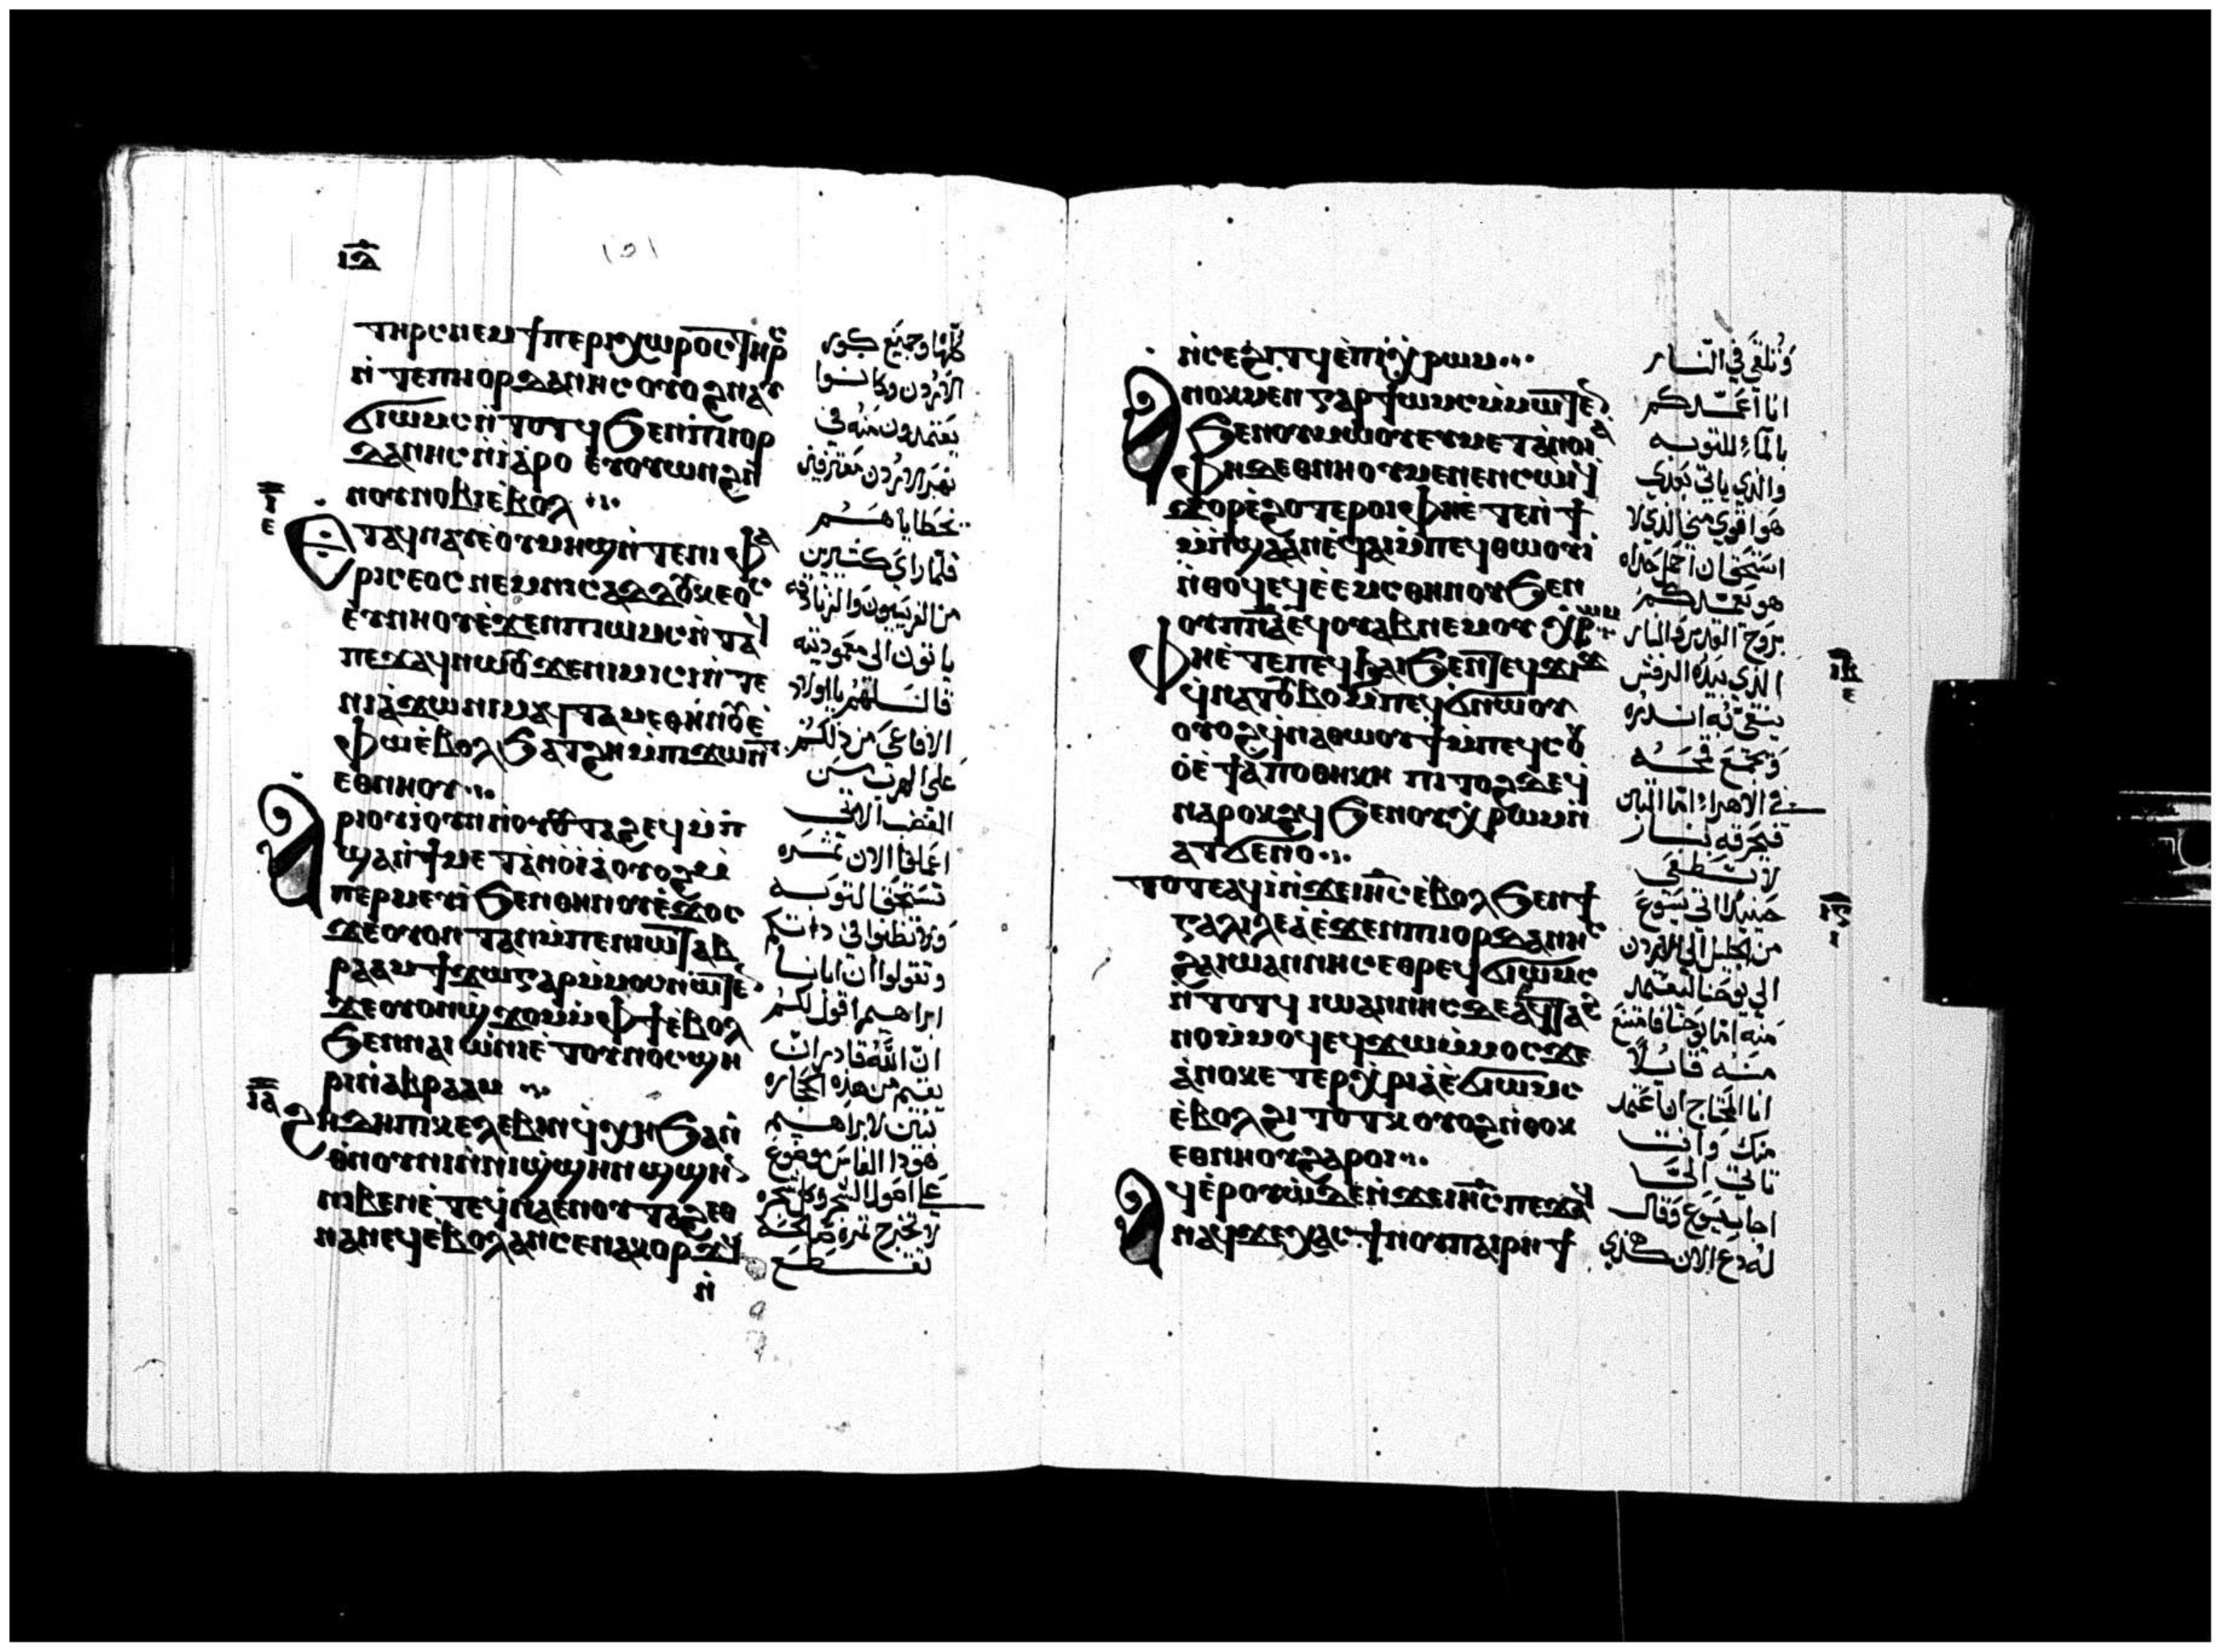 ⲓ̅ⲇ̅
ⲧⲏⲣⲥ ⲛⲉⲙ ϯⲡⲉⲣⲓⲭⲱⲣⲟⲥ ⲧⲏⲣⲥ
ⲛ̀ⲧⲉ ⲡⲓⲟⲣⲇⲁⲛⲏⲥ ⲟⲩⲟϩ ⲛⲁⲩ
ϭⲓⲱⲙⲥ ⲛ̀ⲧⲟⲧϥ ϧⲉⲛ ⲡⲓⲓⲟⲣ
ⲇⲁⲛⲏⲥ ⲛ̀ⲓⲁⲣⲟ ⲉⲩⲟⲩⲱⲛϩ ⲛ̀
ⲛⲟⲩⲛⲟⲃⲓ ⲉ̀ⲃⲟⲗ
ⲉⲧⲁϥⲛⲁⲩ ⲉ̀ⲟⲩⲙⲏϣ ⲛ̀ⲧⲉ ⲛⲓⲫⲁ
ⲣⲓⲥⲉⲟⲥ ⲛⲉⲙ ⲛⲓⲥⲁⲇⲇⲟⲩⲕⲉⲟⲥ
ⲉⲩⲛⲏⲟⲩ ⲉ̀ϫⲉⲛ ⲡⲓⲱⲙⲥ ⲛ̀ⲧⲁϥ
ⲡⲉϫⲁϥ ⲛⲱⲟⲩ ϫⲉ ⲛⲓⲙⲓⲥⲓ ⲛ̀ⲧⲉ
ⲛⲓⲁ̀ϫⲱ ⲛⲓⲙ ⲁϥⲧⲁⲙⲉ ⲑⲏⲛⲟⲩ ⲉ̀
ⲫⲱⲧ ⲉ̀ⲃⲟⲗ ϧⲁⲧϩⲏ ⲙ̀ⲡⲓϫⲱⲛⲧ
ⲉⲑⲛⲏⲟⲩ
ⲁⲣⲓⲟⲩⲓ ⲟⲩⲛ ⲛ̀ⲟⲩⲟⲩⲧⲁϩ ⲉϥⲙ̀ⲡ
ϣⲁ ⲛ̀ϯⲙⲉⲧⲁⲛⲟⲓⲁ ⲟⲩⲟϩ ⲙ̀
ⲡⲉⲣⲙⲉⲩⲓ ϧⲉⲛ ⲑⲏⲛⲟⲩ ⲉ̀ϫⲟⲥ
ϫⲉ ⲟⲩⲟⲛⲧⲁⲛ ⲙ̀ⲡⲉⲛⲓⲱⲧ ⲁⲃ
ⲣⲁⲁⲙ ϯϫⲱ ⲅⲁⲣ ⲙ̀ⲙⲟⲥ ⲛⲱⲧⲉⲛ
ϫⲉ ⲟⲩⲟⲛϣϫⲟⲙ ⲙ̀ⲫϯ ⲉ̀ⲃⲟⲗ
ϧⲉⲛ ⲛⲁⲓⲱ̀ⲛⲓ ⲉ̀ⲧⲟⲩⲛⲟⲥ ϣⲏ
ⲣⲓ ⲛ̀ⲁⲃⲣⲁⲁⲙ
ϩⲏⲇⲏ ⲡⲓⲕⲉⲗⲉⲃⲓⲛ ϥⲭⲏ ϧⲁ ⲛ̀
ⲑⲛⲟⲩⲛⲓ ⲛ̀ⲛⲓϣϣⲏⲛ ϣϣⲏⲛ
ⲛⲓⲃⲉⲛ ⲉ̀ⲧⲉⲛ̀ϥⲛⲁⲉⲛⲟⲩⲧⲁϩ ⲉⲑ
ⲛⲁⲛⲉϥ ⲉ̀ⲃⲟⲗ ⲁⲛ ⲥⲉⲛⲁⲕⲟⲣϫϥ
ⲛ̀
ⲓ̅
ⲉ
ⲓ̅ⲁ̅
كلها وجميع كور
الاردن وكانوا
يعتمدون منه في
نهر الاردن معترفين
بخطاياهم
فلما راى كثيرين
من الفريسيين والزنادقه
ياتون الى معموديته
قال لهم يا اولاد
الافاعي من دلكم
على الهرب من
الغضب الاتي
اعملوا الان ثمره
تستحق التوبه
ولا تظنوا في ذاتكم
وتقولوا ان ابانا
ابراهيم اقول لكم
ان الله قادر ان
يقيم من هذه الحجاره
بنين لابراهيم
هوذا الفاس موضوع
على اصول الشجر وكل شجره
لا تخرج ثمره صالحه
تقطع
ⲛ̀ⲥⲉϩⲓⲧϥ ⲉ̀ⲡⲓⲭ̀ⲣⲱⲙ
ⲁⲛⲟⲕ ⲙⲉⲛ ⲅⲁⲣ ϯⲱⲙⲥ ⲙ̀ⲙⲱⲧⲉⲛ
ϧⲉⲛ ⲟⲩⲙⲱⲟⲩ ⲉⲩⲙⲉⲧⲁⲛⲟⲓⲁ
ⲫⲏ ⲇⲉ ⲉⲑⲛⲏⲟⲩ ⲙⲉⲛⲉⲛⲥⲱⲓ ϥ
ϫⲟⲣ ⲉ̀ϩⲟⲧⲉⲣⲟⲓ ⲫⲏ ⲉ̀ⲧⲉⲛ̀ϯ
ⲙ̀ⲡϣⲁ ⲁⲛ ⲉ̀ϥⲁⲓ ⲙ̀ⲡⲉϥⲑⲱⲟⲩⲓ
ⲛ̀ⲑⲟϥ ⲉϥⲉ̀ⲉⲙⲥ ⲑⲏⲛⲟⲩ ϧⲉⲛ
ⲟⲩⲡⲛⲁ̅ ⲉϥⲟⲩⲁⲃ ⲛⲉⲙ ⲟⲩⲭ̀ⲣⲱⲙ
ⲫⲏ ⲉ̀ⲧⲉ ⲡⲉϥϧⲁⲓ ϧⲉⲛ ⲧⲉϥϫⲓϫ
ϥⲛⲁⲧⲟⲩⲃⲟ ⲙ̀ⲡⲉϥϭⲛⲱⲟⲩ
ⲟⲩⲟϩ ϥⲛⲁⲑⲱⲟⲩϯ ⲙ̀ⲡⲉϥⲥⲟⲩ
ⲟ̀ ⲉ̀ϯⲁⲡⲟⲑⲏⲕⲏ ⲡⲓⲧⲟϩ ⲇⲉ ϥ
ⲛⲁⲣⲟⲕϩϥ ϧⲉⲛ ⲟⲩⲭ̀ⲣⲱⲙ ⲛ̀
ⲁⲧϭⲉⲛⲟ
ⲧⲟⲧⲉ ⲁϥⲓ̀ ⲛ̀ϫⲉ ⲓⲏ̅ⲥ̅ ⲉ̀ⲃⲟⲗ ϧⲉⲛ ϯ
ⲅⲁⲗⲓⲗⲉⲁ ⲉ̀ϫⲉⲛ ⲡⲓⲓⲟⲣⲇⲁⲛⲏⲥ
ϩⲁ ⲓⲱⲁⲛⲛⲏⲥ ⲉⲑⲣⲉϥϭⲓⲱⲙⲥ
ⲛ̀ⲧⲟⲧϥ ⲓⲱⲁⲛⲛⲏⲥ ⲇⲉ ⲁϥⲧⲁϩ
ⲛⲟ ⲙ̀ⲙⲟϥ ⲉϥϫⲱ ⲙ̀ⲙⲟⲥ ϫⲉ
ⲁ̀ⲛⲟⲕ ⲉⲧⲉⲣⲭ̀ⲣⲓⲁ ⲉ̀ϭⲓⲱⲙⲥ
ⲉ̀ⲃⲟⲗ ϩⲓⲧⲟⲧⲕ ⲟⲩⲟϩ ⲛ̀ⲑⲟⲕ
ⲉⲑⲛⲏⲟⲩ ϩⲁⲣⲟⲓ
ⲁϥⲉⲣⲟⲩⲱ̀ ⲇⲉ ⲛ̀ϫⲉ ⲓⲏ̅ⲥ̅ ⲡⲉϫⲁϥ
ⲛⲁϥ ϫⲉ ⲭⲁⲥ ϯⲛⲟⲩ ⲡⲁⲓⲣⲏϯ
وتلقى في النار
انا اعمدكم
بالماء للتوبه
والذي ياتي بعدي
هو اقوى مني الذي لا
استحق ان احمل حذاه
هو يعمدكم
بروح القدس والنار
الذي بيده الرفش
ينقي به اندره
ويجمع قمحه
في الاهراء اما التبن
فيحرقه بنار
لا تطفى
حينيذ اتى يسوع
من الجليل الى الاردن
الى يوحنا ليعتمد
منه اما يوحنا فامتنع
منه قايلا
انا المحتاج ان اعتمد
منك وانت
تاتي اليّ
اجاب يسوع وقال
له دع الان هكذي
ⲓ̅ⲃ̅
ⲉ
ⲓ̅ⲅ̅
ⲓ